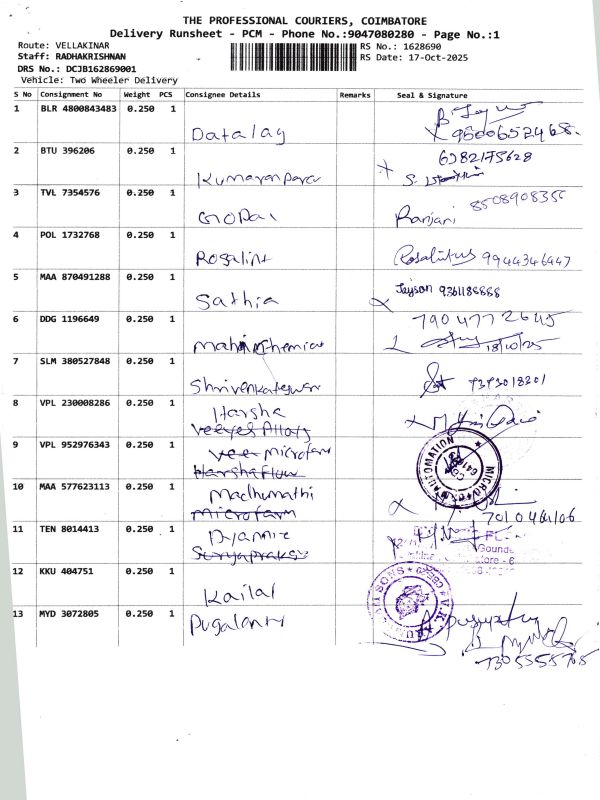 THE PROFESSIONAL COURIERS, COIMBATORE
Delivery Runsheet - PCM - Phone No.:9047080280 - Page No.:1
Route: VELLAKINAR
RS No.: 1628690
Staff: RADHAKRISHNAN
RS Date: 17-Oct-2025
DRS No.: DCJB162869001
Vehicle: Two Wheeler Delivery
S No Consignment No Weight PCS Consignee Details Remarks Seal & Signature
1 BLR 4800843483 0.250 1
Datalay 9500652468.
2 BTU 396206 0.250 1 6382175628
3 TVL 7354576 0.250 1
GOPal Ranjani
4 POL 1732768 0.250 1
Rosalint 9944346947
5 MAA 870491288 0.250 1
Sathia Jeyson 9361188888
6 DDG 1196649 0.250 1 790477 2645
18/10/25
7 SLM 380527848 0.250 1
Shrivenkateswar
8 VPL 230008286 0.250 1
Harsha
Veeyes Alloys
9 VPL 952976343 0.250 1
microfarm
Harshaflow
MICRO AUTOMATION
10 MAA 577623113 0.250 1
Madhumathi
microfarm
11 TEN 8014413 0.250 1
Suryaprakas
12 KKU 404751 0.250 1
Kailal
13 MYD 3072805 0.250 1